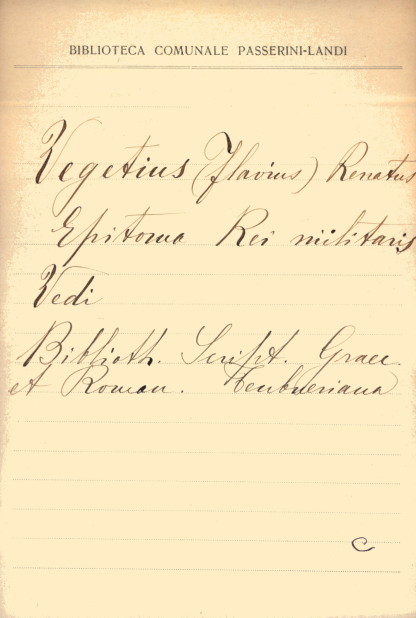 BIBLIOTECA COMUNALE PASSERINI-LANDI
Vegetius (Flavius) Renatus
Epitoma Rei militaris
Vedi
Biblioth. Script. Graec.
et Roman. Teubneriana
C